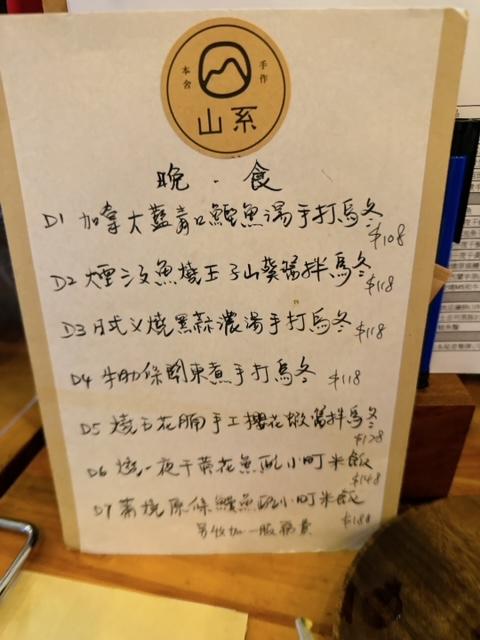 本舍
手作
山系
晚．食
D1 加拿大藍青口鰹魚湯手打烏冬 $108
D2 煙三文魚燒玉子山葵醬拌烏冬 $118
D3 日式义燒黑蒜濃湯手打烏冬 $118
D4 牛肋條関東煮手打烏冬 $118
D5 燒五花腩手工櫻花蝦醬拌烏冬 $128
D6 燒一夜干黃花魚配小町米飯 $148
D7 蒲燒原條鰻魚配小町米飯 $188
另收加一服務費